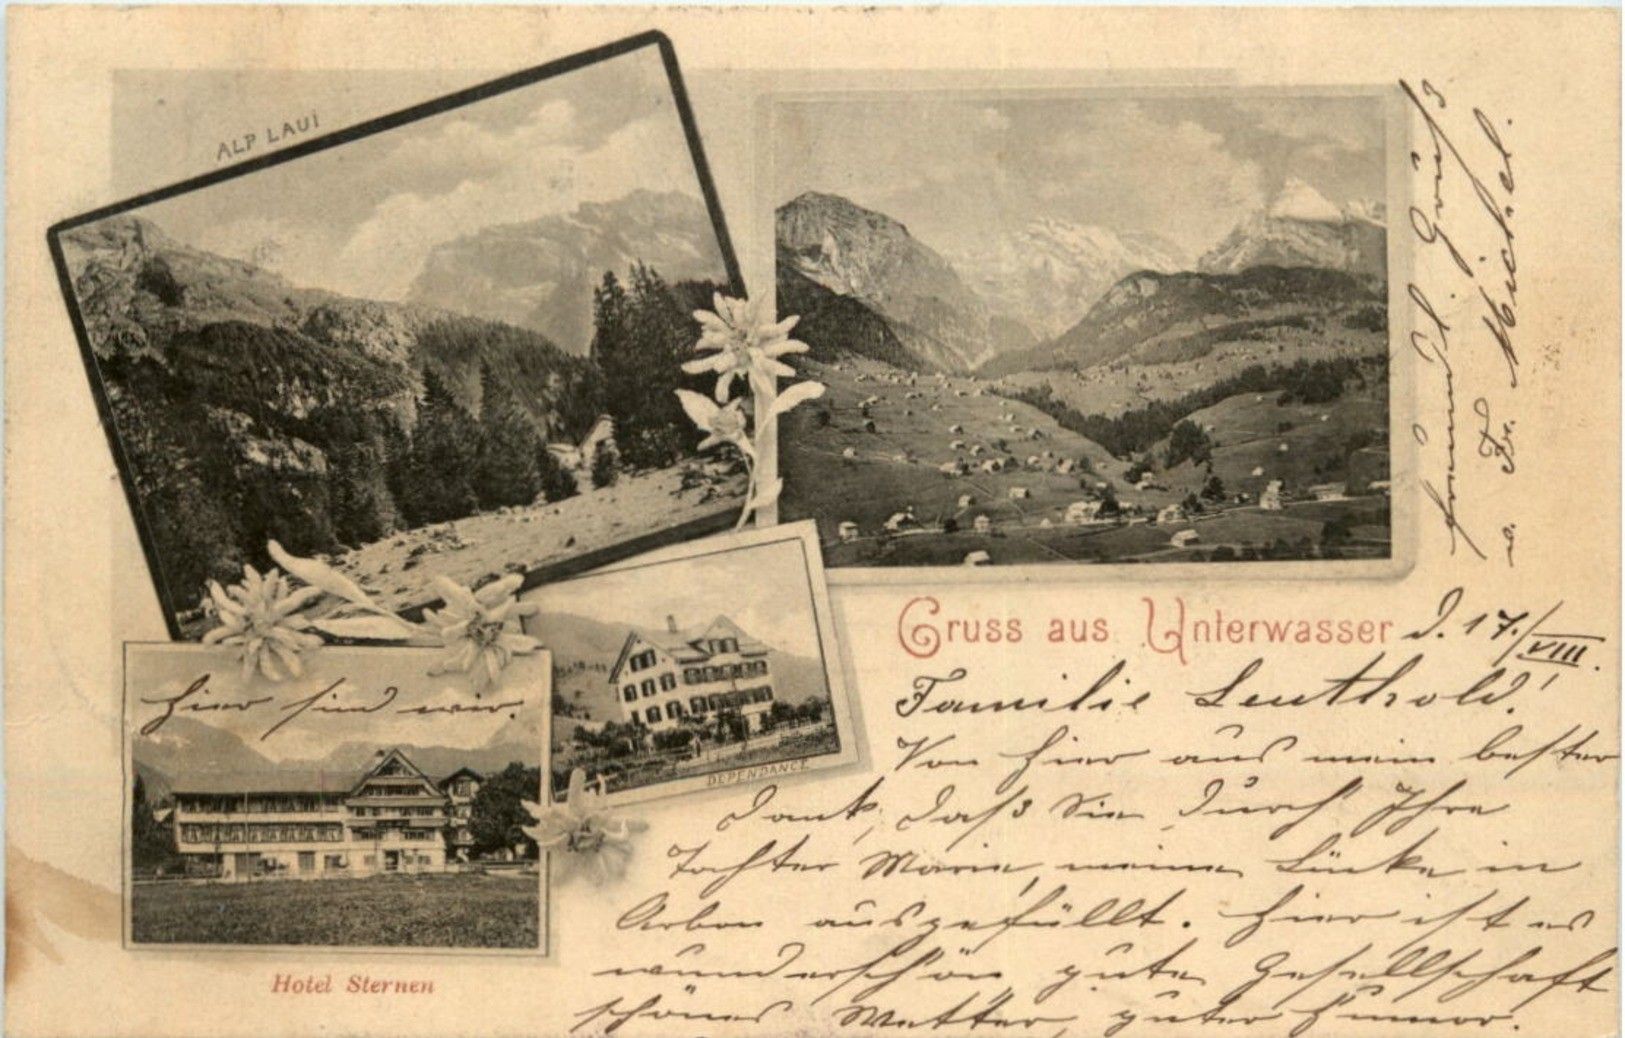 ALP LAUI
Gruss aus Unterwasser d. 17./VIII.
Familie Leuthold!
Von hier aus mein bester
Dank, daß Sie durch Ihre
Tochter Marie, meine Lücke in
Arbon ausgefüllt. Hier ist es
wunderschön, gute Gesellschaft
schönes Wetter, guter Humor.
freundl. Grüß
v. Fr. Michel.
Hier sind wir.
DEPENDANCE
Hotel Sternen